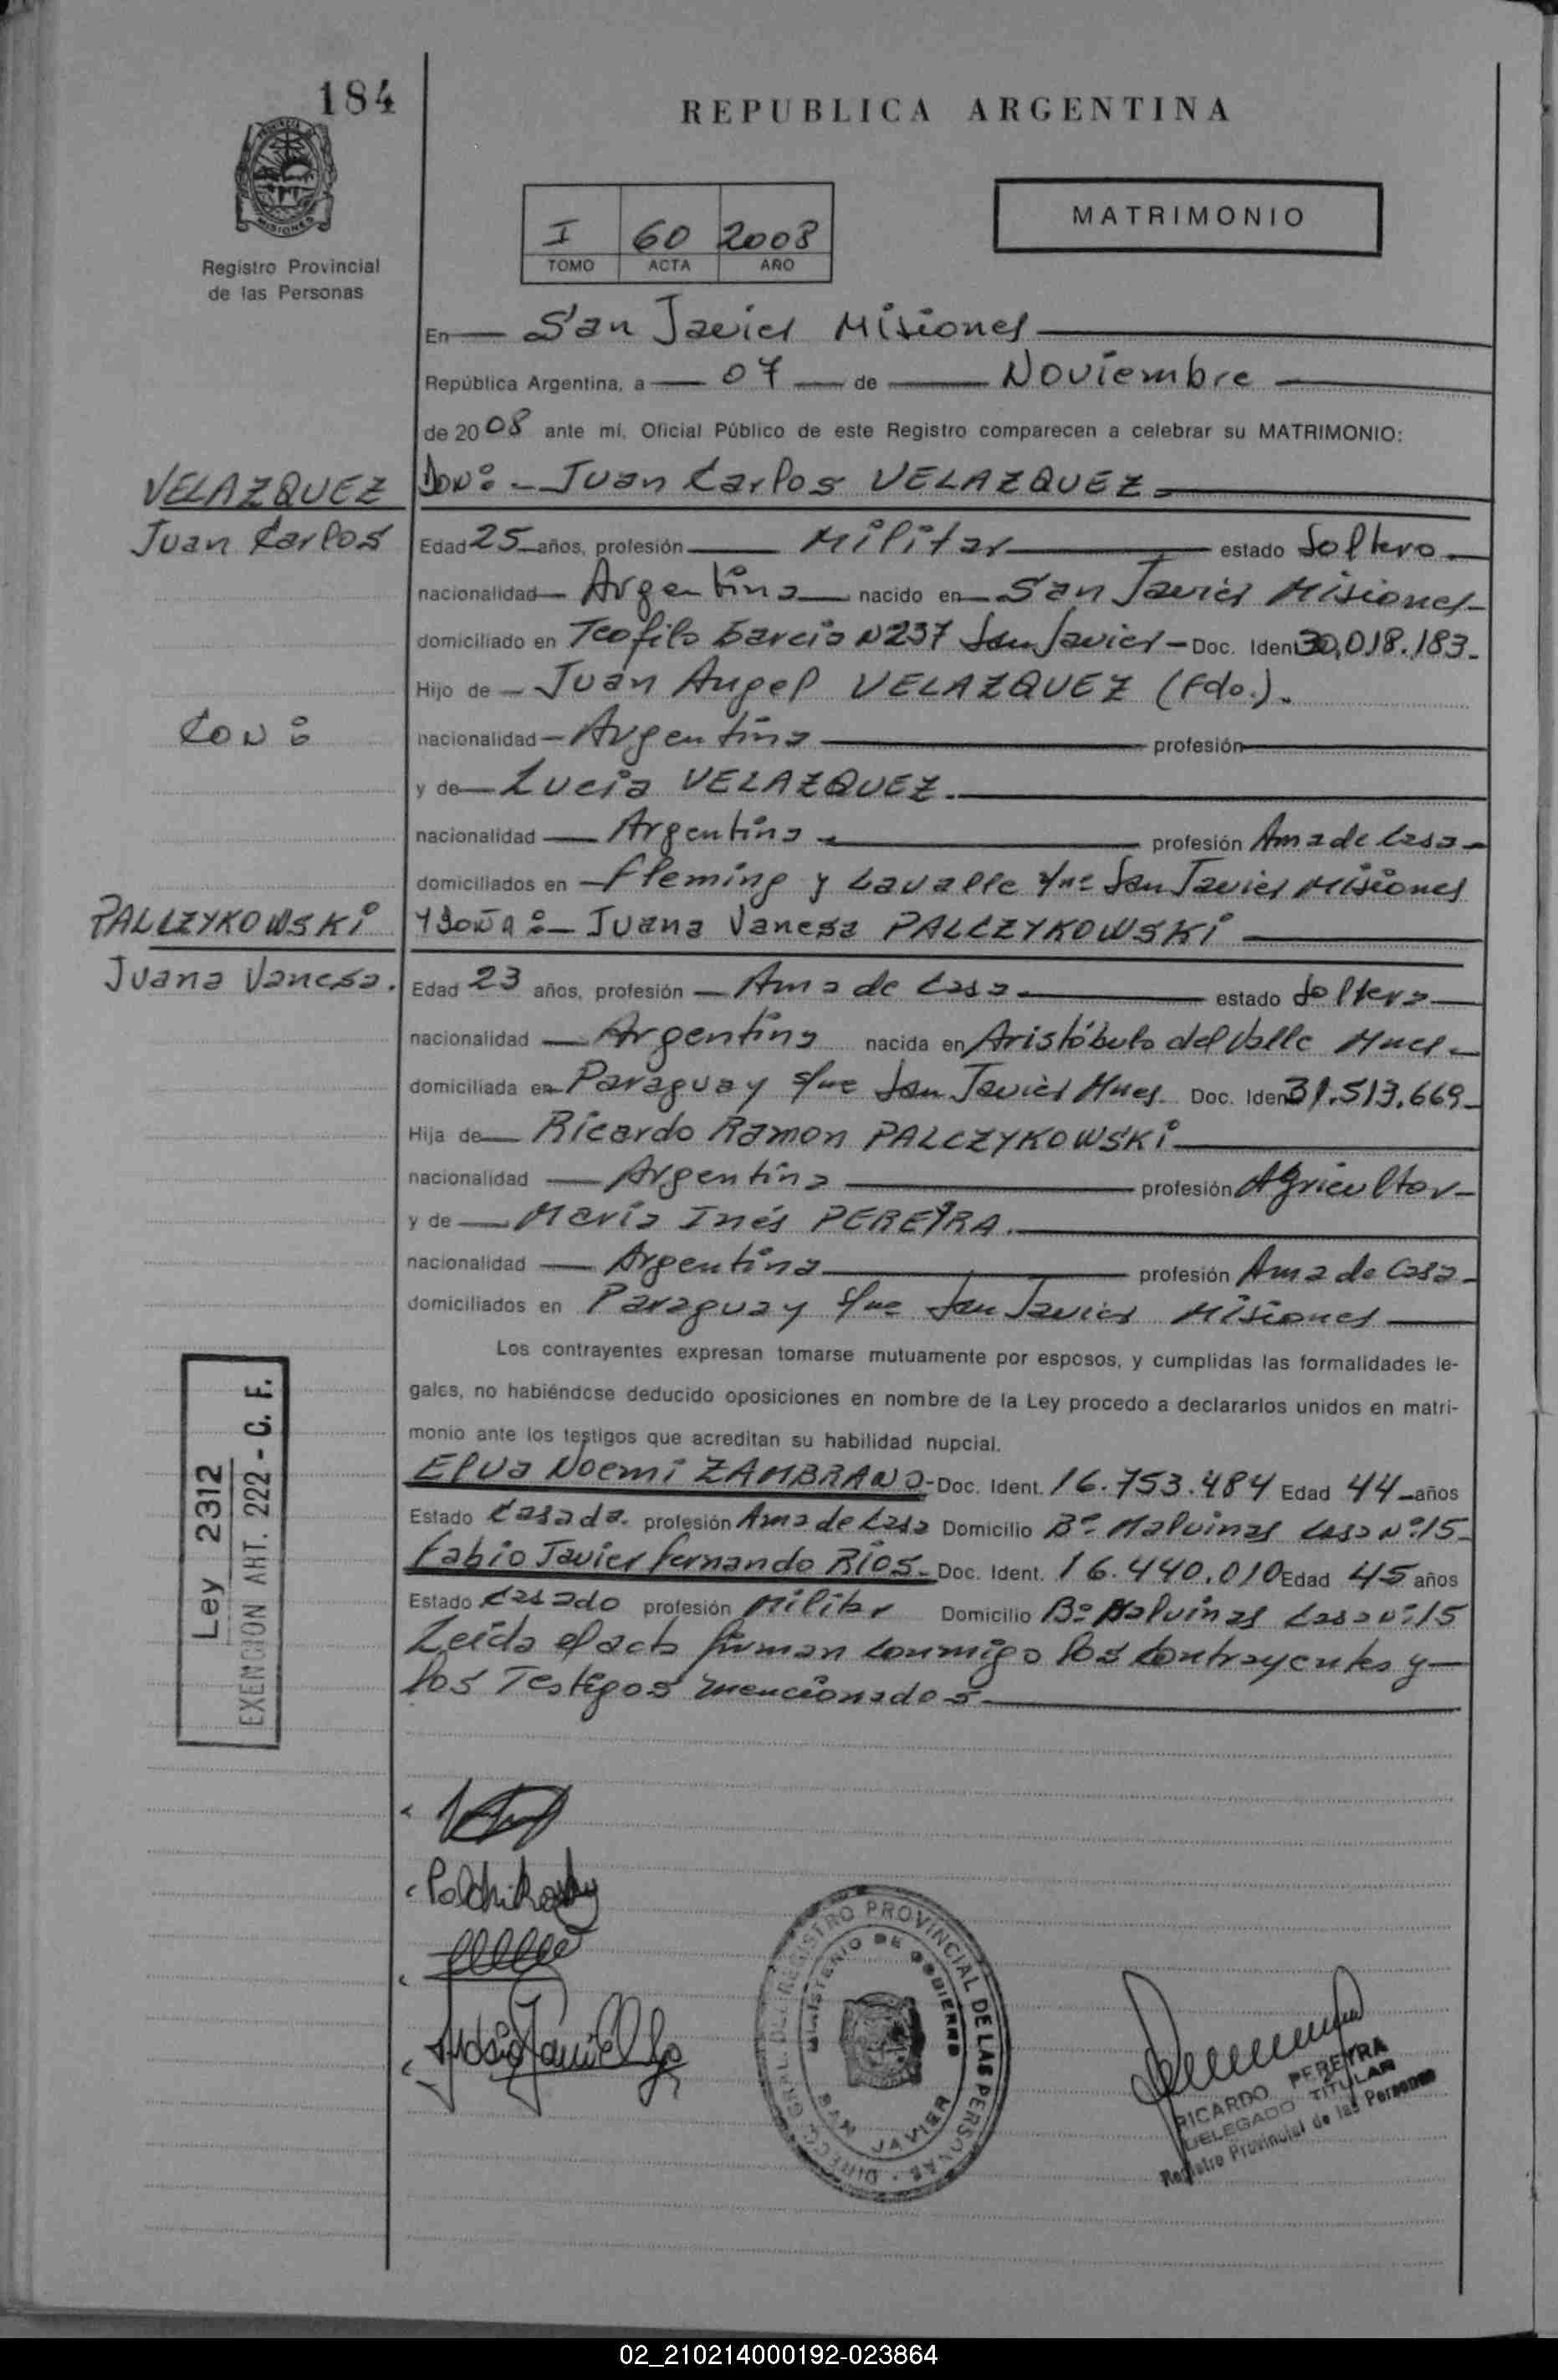 184
REPUBLICA ARGENTINA
PROVINCIA DE
MISIONES
Registro Provincial
de las Personas
I 60 2008
TOMO ACTA AÑO
MATRIMONIO
En San Javier Misiones
República Argentina, a 07 de Noviembre
de 2008 ante mí, Oficial Público de este Registro comparecen a celebrar su MATRIMONIO:
VELAZQUEZ
Juan Carlos
Don: - Juan Carlos VELAZQUEZ
Edad 25 años, profesión Militar estado Soltero
nacionalidad Argentina nacido en San Javier Misiones
domiciliado en Teofilo Garcia N237 San Javier - Doc. Iden 30.018.183
Hijo de Juan Angel VELAZQUEZ (Fdo.).
CON:
nacionalidad Argentina profesión
y de Lucia VELAZQUEZ.
nacionalidad Argentina profesión Ama de Casa
domiciliados en Fleming y Lavalle San Javier Misiones
PALCZYKOWSKI
Juana Vanesa.
Y DOÑA: - Juana Vanesa PALCZYKOWSKI
Edad 23 años, profesión Ama de Casa estado Soltera
nacionalidad Argentina nacida en Aristóbulo del Valle Mnes
domiciliada en Paraguay San Javier Mnes. Doc. Iden 31.513.669
Hija de Ricardo Ramon PALCZYKOWSKI
nacionalidad Argentina profesión Agricultor
y de Maria Inés PEREYRA.
nacionalidad Argentina profesión Ama de Casa
domiciliados en Paraguay San Javier Misiones
Los contrayentes expresan tomarse mutuamente por esposos, y cumplidas las formalidades le-
gales, no habiéndose deducido oposiciones en nombre de la Ley procedo a declararlos unidos en matri-
monio ante los testigos que acreditan su habilidad nupcial.
Ley 2312
EXENCION ART. 222 - C. F.
Elva Noemi ZAMBRANO - Doc. Ident. 16.753.484 Edad 44 años
Estado Casada. profesión Ama de Casa Domicilio Bº Malvinas Casa Nº15
Fabio Javier Fernando RIOS - Doc. Ident. 16.440.010 Edad 45 años
Estado Casado profesión Militar Domicilio Bº Malvinas Casa Nº15
Leida el acta firman conmigo los contrayentes y
los Testigos mencionados
DIRECC. GRAL. DEL REGISTRO PROVINCIAL DE LAS PERSONAS
MINISTERIO DE GOBIERNO
SAN JAVIER
RICARDO PEREYRA
DELEGADO TITULAR
Registro Provincial de las Personas
02_210214000192-023864